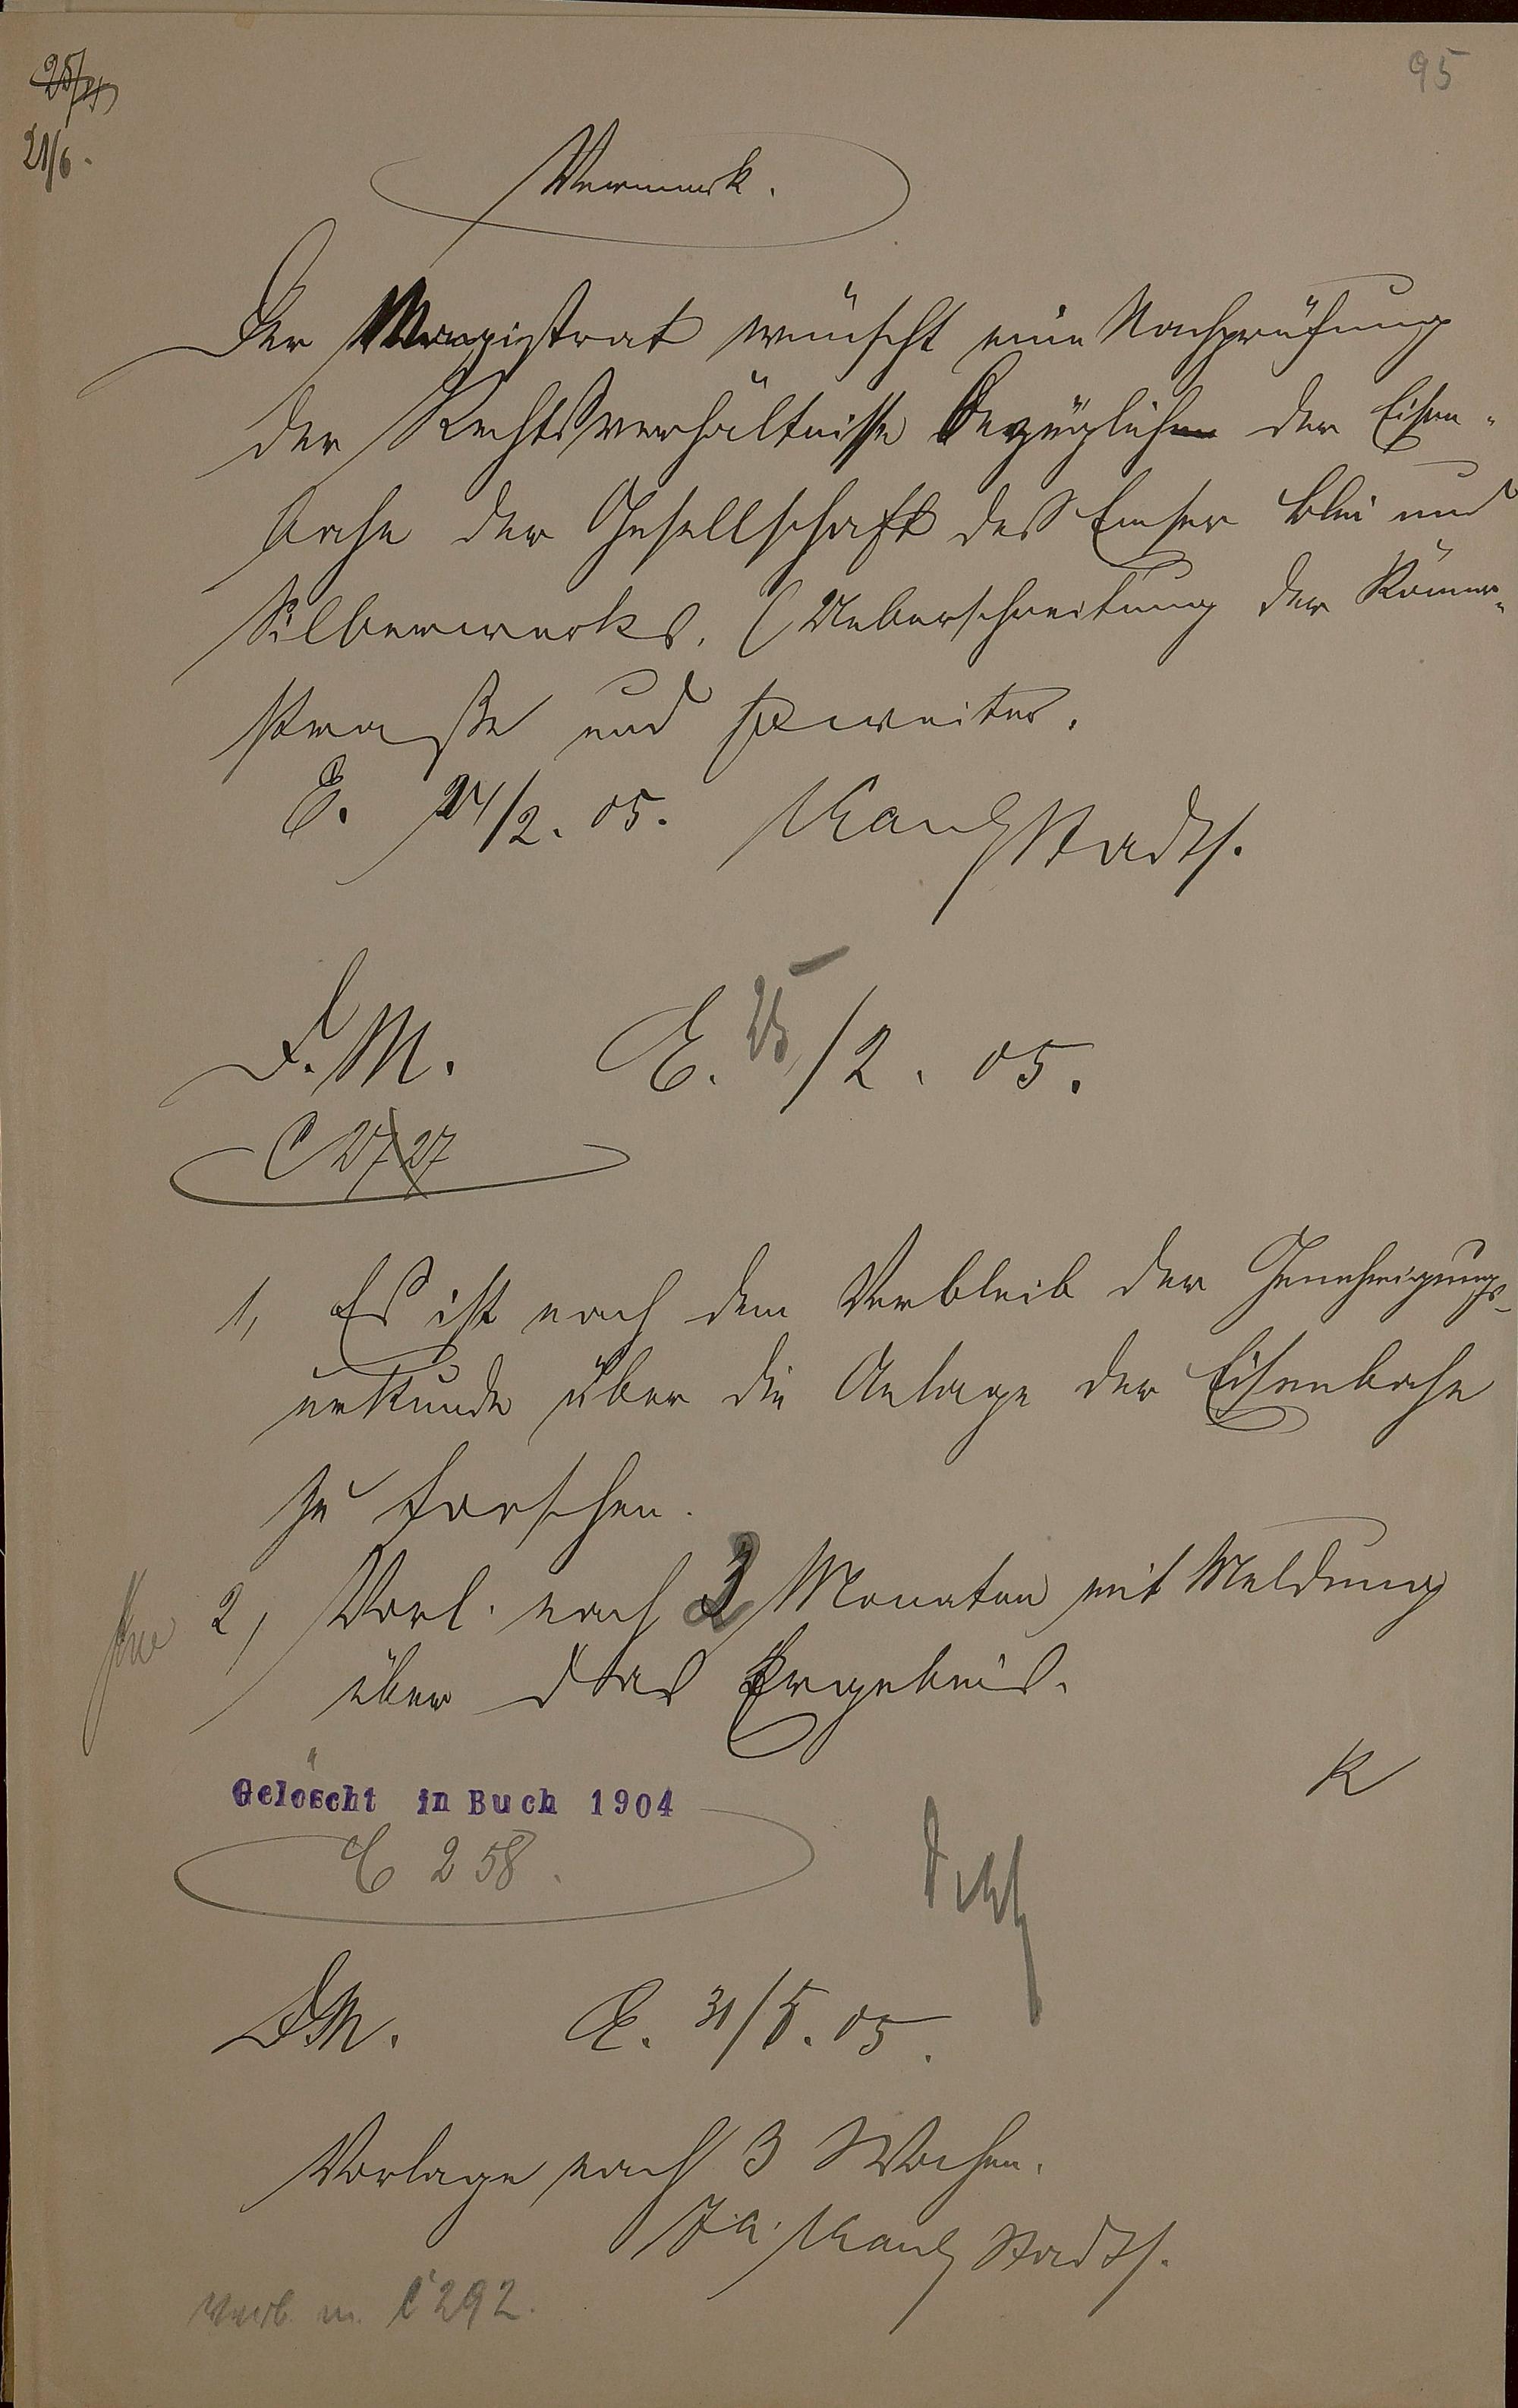 95
25/5
21/6.
Vermerk.
Der Magistrat wünscht eine Nachprüfung
der Rechtsverhältnisse bezüglich der Eisen-
bahn der Gesellschaft des Emser Blei und
Silberwerks. (Ueberschreitung der Römer-
straße und so weiter.
E. 24/2. 05. Kaul Stadts.
D. M. E. 25/2. 05.
C 27
1, Es ist nach dem Verbleib der Genehmigungs-
urkunde über die Anlage der Eisenbahn
zu forschen.
2, Vorl. nach 3 Monaten mit Meldung
über das Ergebnis.
K
Gelöscht in Buch 1904
C 258.
D.M. E. 31/5. 05.
Vorlage nach 3 Wochen.
J.A. Kaul Stadts.
Verb. m. C 292.